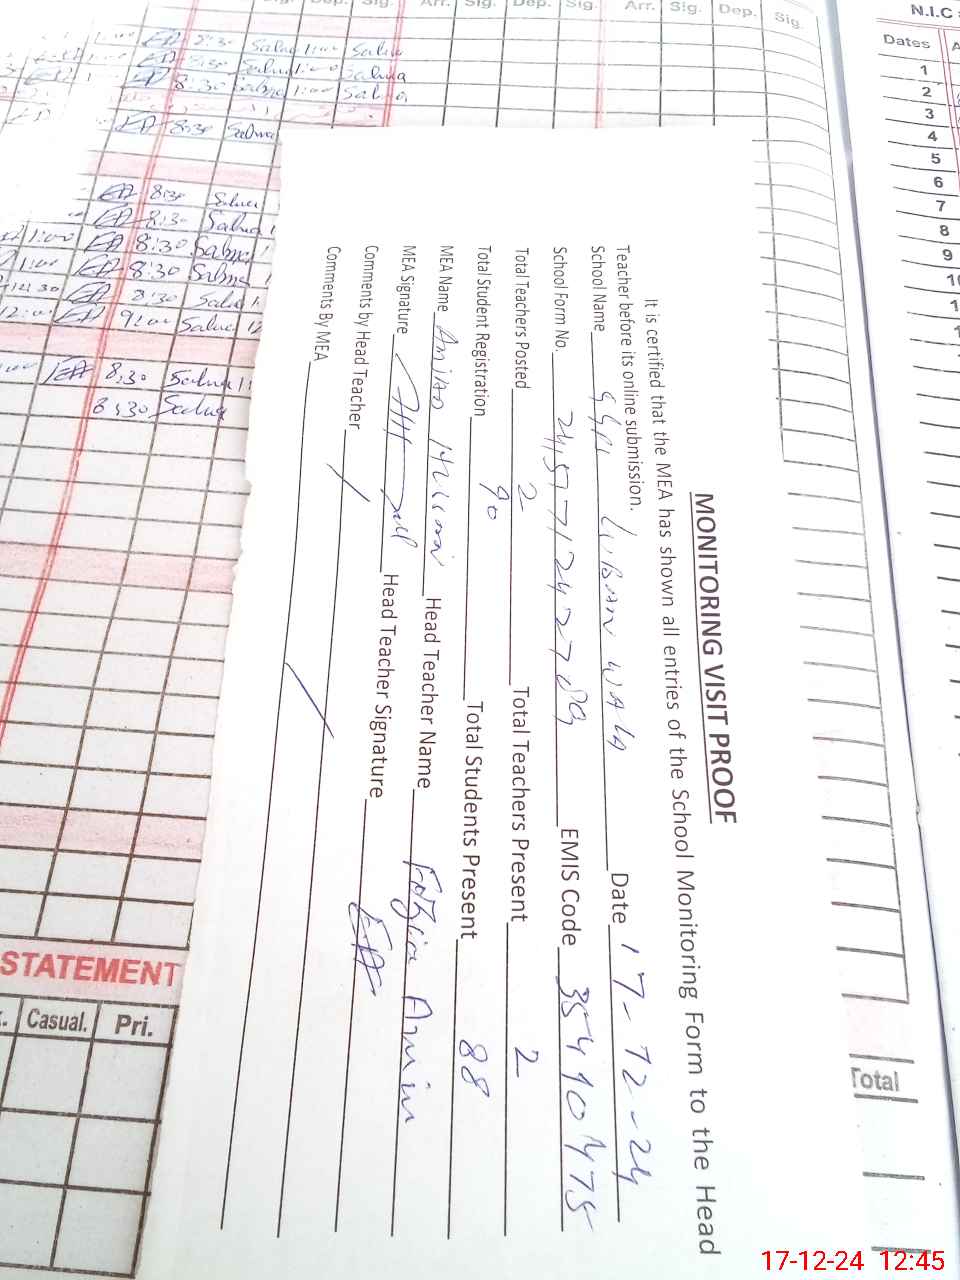 Arr. Sig. Dep. Sig. Arr. Sig. Dep. Sig.
1:00 8:30 Salma 1:00 Salma
8:30 Salma 1:00 Salma
8:30 Salma 1:00 Salma
8:30 Salma
8:30 Salma
8:30 Salma
1:00 8:30 Salma
1:00 8:30 Salma
12:30 8:30 Salma
12:00 9:00 Salma 12
8:30 Salma
8:30 Salma
STATEMENT
Casual. Pri.
N.I.C
Dates
1
2
3
4
5
6
7
8
9
Total
MONITORING VISIT PROOF
It is certified that the MEA has shown all entries of the School Monitoring Form to the Head
Teacher before its online submission.
School Name GGPS WALA Date 17-12-24
School Form No. EMIS Code 35410475
Total Teachers Posted 2 Total Teachers Present 2
Total Student Registration 90 Total Students Present 88
MEA Name Head Teacher Name Fozia Amin
MEA Signature Head Teacher Signature
Comments by Head Teacher
Comments By MEA
17-12-24 12:45